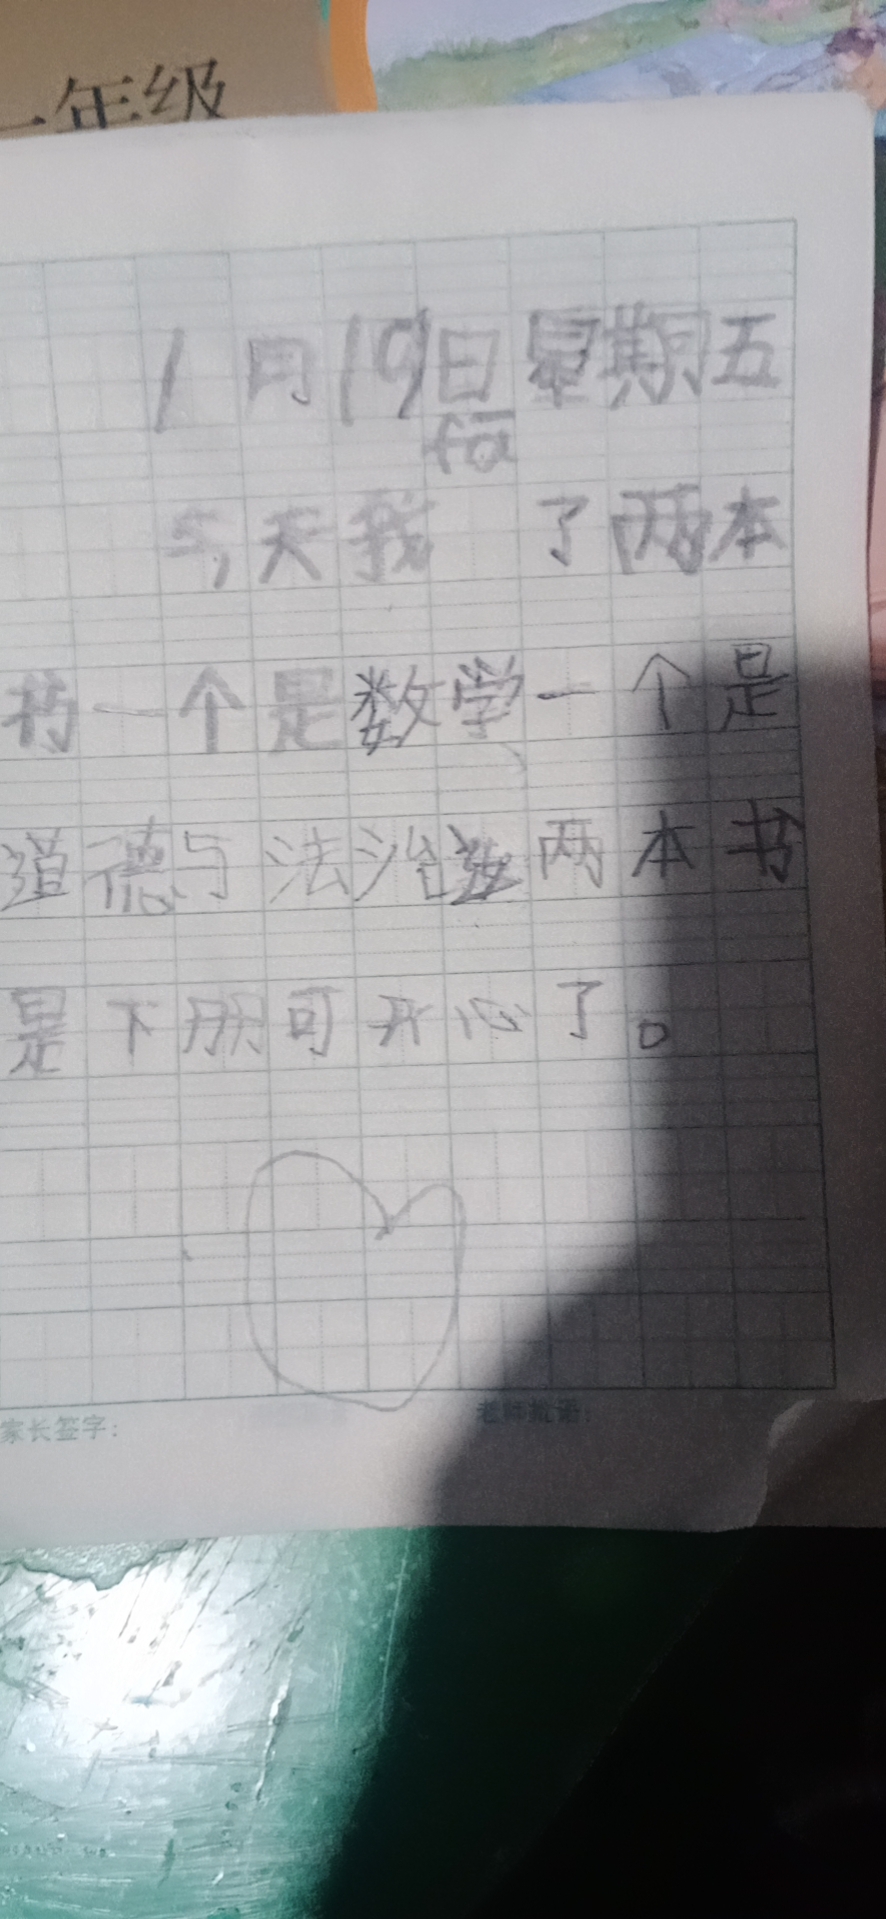 一年级
1月19日星期五
fā
今天我 了两本
书一个是数学一个是
道德与法治这两本书
是下册可开心了。
家长签字: 老师批语: